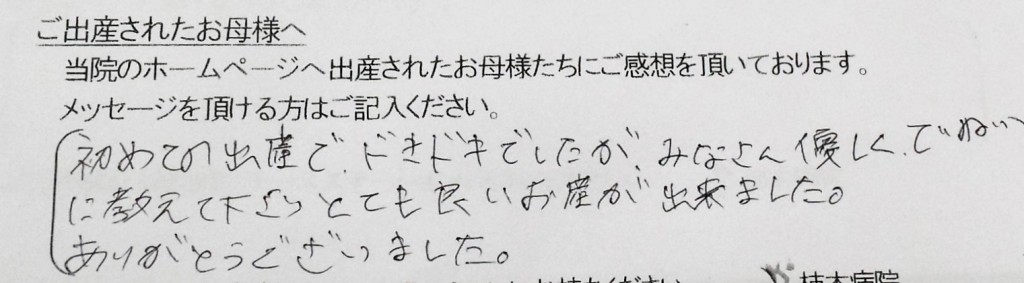 ご出産されたお母様へ
当院のホームページへ出産されたお母様たちにご感想を頂いております。
メッセージを頂ける方はご記入ください。
初めての出産で、ドきドキでしたが、みなさん優しく、ていねい
に教えて下さりとても良いお産が出来ました。
ありがとうございました。
柿木病院